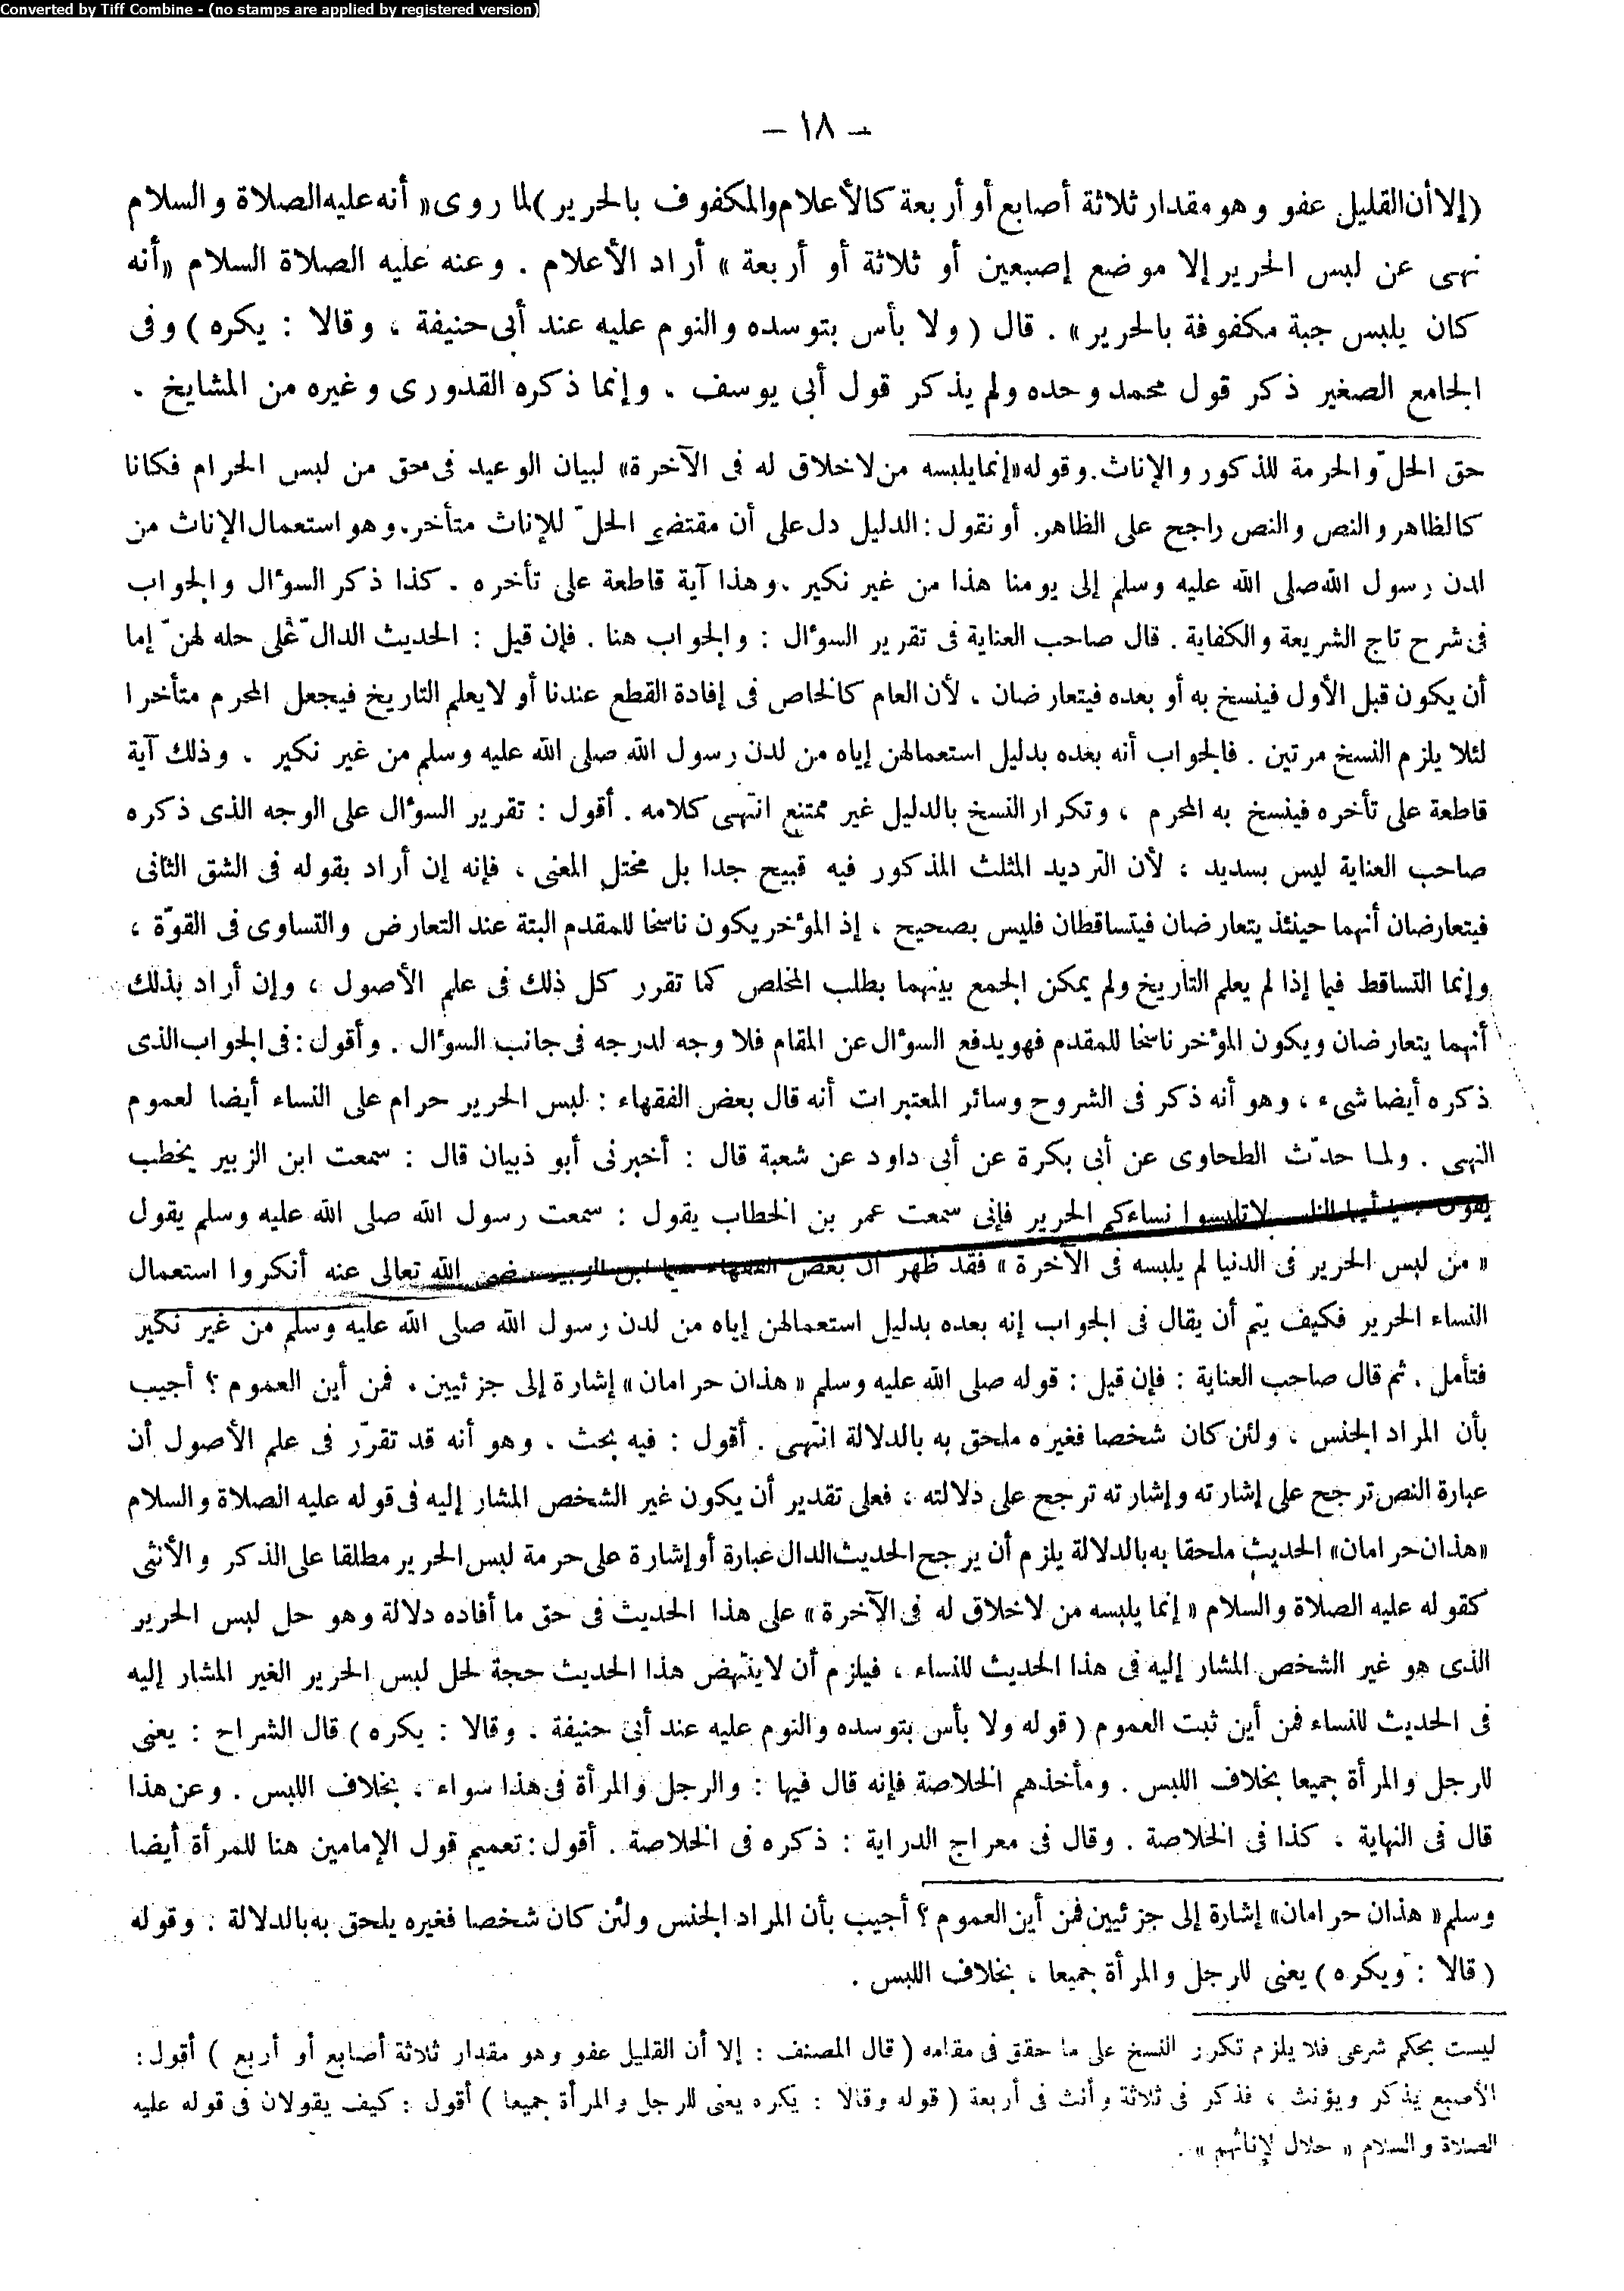 Converted by Tiff Combine - (no stamps are applied by registered version)
– ١٨ –
(إلا أن القليل عفو وهو مقدار ثلاثة أصابع أو أربعة كالأعلام والمكفوف بالحرير) لما روى « أنه عليه الصلاة والسلام
نهى عن لبس الحرير إلا موضع إصبعين أو ثلاثة أو أربعة » أراد الأعلام . وعنه عليه الصلاة السلام « أنه
كان يلبس جبة مكفوفة بالحرير » . قال ( ولا بأس بتوسده والنوم عليه عند أبى حنيفة ، وقالا : يكره ) وفى
الجامع الصغير ذكر قول محمد وحده ولم يذكر قول أبى يوسف ، وإنما ذكره القدورى وغيره من المشايخ .
حق الحلّ والحرمة للذكور والإناث. وقوله «إنما يلبسه من لاخلاق له فى الآخرة» لبيان الوعيد فى حق من لبس الحرام فكانا
كالظاهر والنص والنص راجح على الظاهر. أو نقول : الدليل دل على أن مقتضى الحلّ للإناث متأخر، وهو استعمال الإناث من
لدن رسول الله صلى الله عليه وسلم إلى يومنا هذا من غير نكير ، وهذا آية قاطعة على تأخره . كذا ذكر السؤال والجواب
فى شرح تاج الشريعة والكفاية . قال صاحب العناية فى تقرير السؤال : والجواب هنا . فإن قيل : الحديث الدالّ على حله لهنّ إما
أن يكون قبل الأول فينسخ به أو بعده فيتعارضان ، لأن العام كالخاص فى إفادة القطع عندنا أو لايعلم التاريخ فيجعل المحرم متأخرا
لئلا يلزم النسخ مرتين . فالجواب أنه بعده بدليل استعمالهن إياه من لدن رسول الله صلى الله عليه وسلم من غير نكير ، وذلك آية
قاطعة على تأخره فينسخ به المحرم ، وتكرار النسخ بالدليل غير ممتنع انتهى كلامه . أقول : تقرير السؤال على الوجه الذى ذكره
صاحب العناية ليس بسديد ، لأن الترديد المثلث المذكور فيه قبيح جدا بل مختل المعنى ، فإنه إن أراد بقوله فى الشق الثانى
فيتعارضان أنهما حينئذ يتعارضان فيتساقطان فليس بصحيح ، إذ المؤخر يكون ناسخا للمقدم البتة عند التعارض والتساوى فى القوّة ،
وإنما التساقط فيما إذا لم يعلم التاريخ ولم يمكن الجمع بينهما بطلب المخلص كما تقرر كل ذلك فى علم الأصول ، وإن أراد بذلك
أنهما يتعارضان ويكون المؤخر ناسخا للمقدم فهو يدفع السؤال عن المقام فلا وجه لدرجه فى جانب السؤال . وأقول : فى الجواب الذى
ذكره أيضا شىء ، وهو أنه ذكر فى الشروح وسائر المعتبرات أنه قال بعض الفقهاء : لبس الحرير حرام على النساء أيضا لعموم
النهى . ولما حدّث الطحاوى عن أبى بكرة عن أبى داود عن شعبة قال : أخبرنى أبو ذبيان قال : سمعت ابن الزبير يخطب
يقول : يا أيها الناس لاتلبسوا نساءكم الحرير فإنى سمعت عمر بن الخطاب يقول : سمعت رسول الله صلى الله عليه وسلم يقول
« من لبس الحرير فى الدنيا لم يلبسه فى الآخرة » فقد ظهر أن بعض الفقهاء سيما ابن الزبير رضى الله تعالى عنه أنكروا استعمال
النساء الحرير فكيف يتم أن يقال فى الجواب إنه بعده بدليل استعمالهن إياه من لدن رسول الله صلى الله عليه وسلم من غير نكير
فتأمل . ثم قال صاحب العناية : فإن قيل : قوله صلى الله عليه وسلم « هذان حرامان » إشارة إلى جزئيين ، فمن أين العموم ؟ أجيب
بأن المراد الجنس ، ولئن كان شخصا فغيره ملحق به بالدلالة انتهى . أقول : فيه بحث ، وهو أنه قد تقرّر فى علم الأصول أن
عبارة النص ترجح على إشارته وإشارته ترجح على دلالته ، فعلى تقدير أن يكون غير الشخص المشار إليه فى قوله عليه الصلاة والسلام
«هذان حرامان» الحديث ملحقا به بالدلالة يلزم أن يرجح الحديث الدال عبارة أو إشارة على حرمة لبس الحرير مطلقا على الذكر والأنثى
كقوله عليه الصلاة والسلام « إنما يلبسه من لاخلاق له فى الآخرة » على هذا الحديث فى حق ما أفاده دلالة وهو حل لبس الحرير
الذى هو غير الشخص المشار إليه فى هذا الحديث للنساء ، فيلزم أن لاينتهض هذا الحديث حجة لحل لبس الحرير الغير المشار إليه
فى الحديث للنساء فمن أين ثبت العموم ( قوله ولا بأس بتوسده والنوم عليه عند أبى حنيفة . وقالا : يكره ) قال الشراح : يعنى
للرجل والمرأة جميعا بخلاف اللبس . ومأخذهم الخلاصة فإنه قال فيها : والرجل والمرأة فى هذا سواء ، بخلاف اللبس . وعن هذا
قال فى النهاية ، كذا فى الخلاصة . وقال فى معراج الدراية : ذكره فى الخلاصة . أقول : تعميم قول الإمامين هنا للمرأة أيضا
وسلم « هذان حرامان» إشارة إلى جزئيين فمن أين العموم ؟ أجيب بأن المراد الجنس ولئن كان شخصا فغيره يلحق به بالدلالة . وقوله
( قالا : ويكره ) يعنى للرجل والمرأة جميعا ، بخلاف اللبس .
ليست بحكم شرعى فلا يلزم تكرر النسخ على ما حقق فى مقامه ( قال المصنف : إلا أن القليل عفو وهو مقدار ثلاثة أصابع أو أربع ) أقول :
الأصبع يذكر ويؤنث ، فذكر فى ثلاثة وأنث فى أربعة ( قوله وقالا : يكره يعنى للرجل والمرأة جميعا ) أقول : كيف يقولان فى قوله عليه
الصلاة والسلام « حلال لإناثهم » .